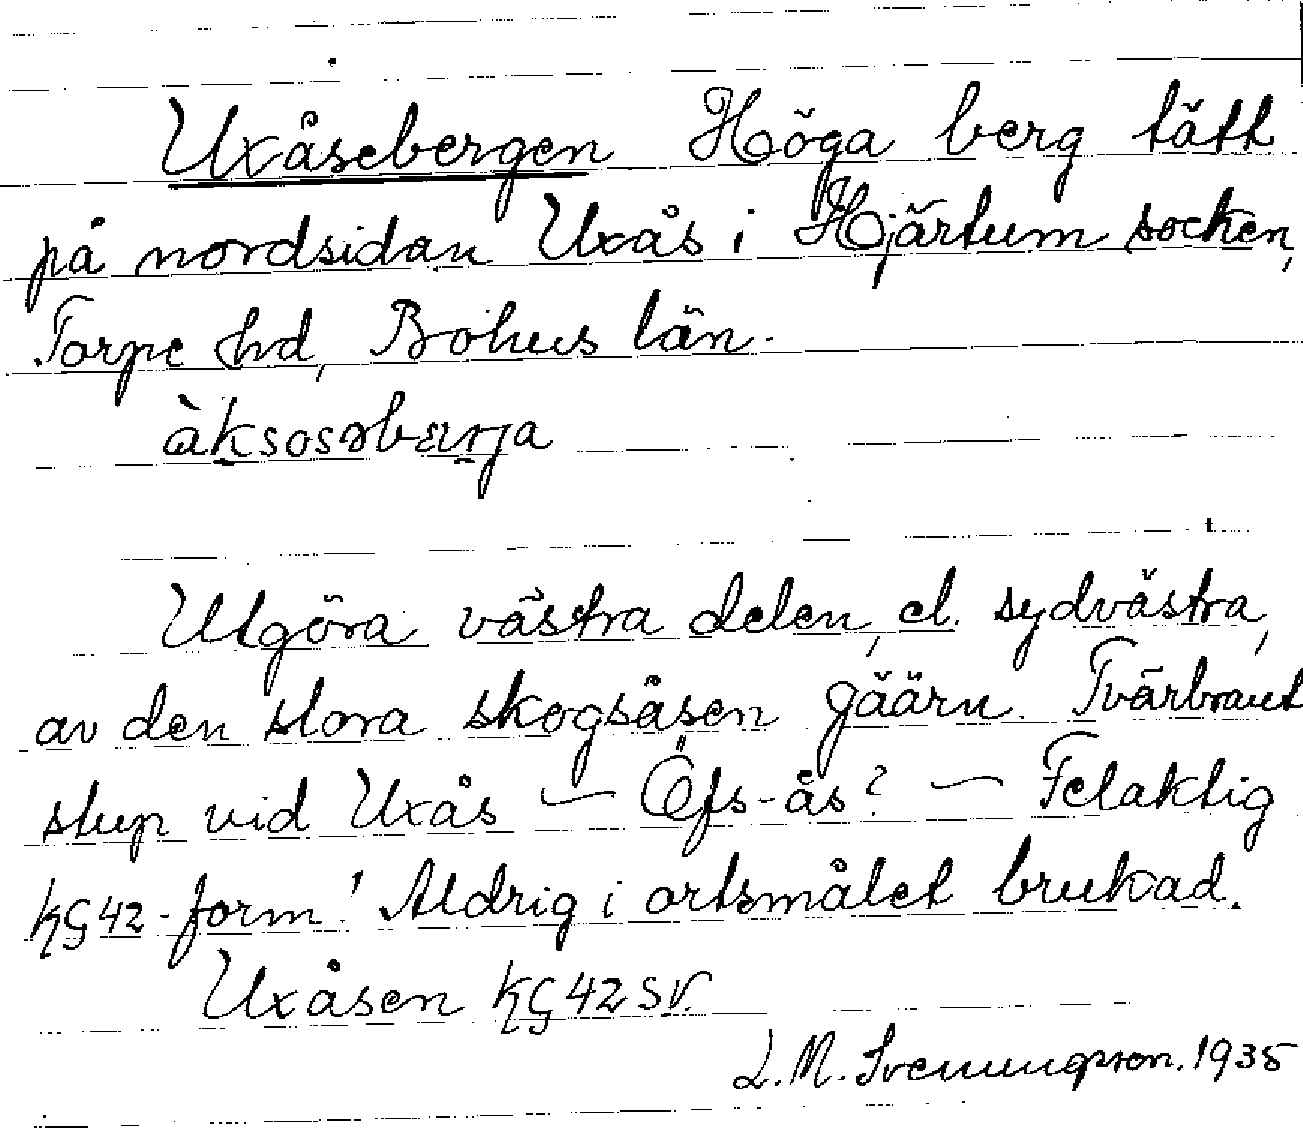 Uxåsebergen Höga berg tätt
på nordsidan Uxås i Hjärtum socken,
Torpe hd, Bohus län.
àksosəbærja
Utgöra västra delen, el. sydvästra,
av den stora skogsåsen gäärn. Tvärbrant
stup vid Uxås — Öfs-ås? — Felaktig
KG42-form! Aldrig i ortsmålet brukad.
Uxåsen KG42SV.
L.M. Svenungsson. 1935